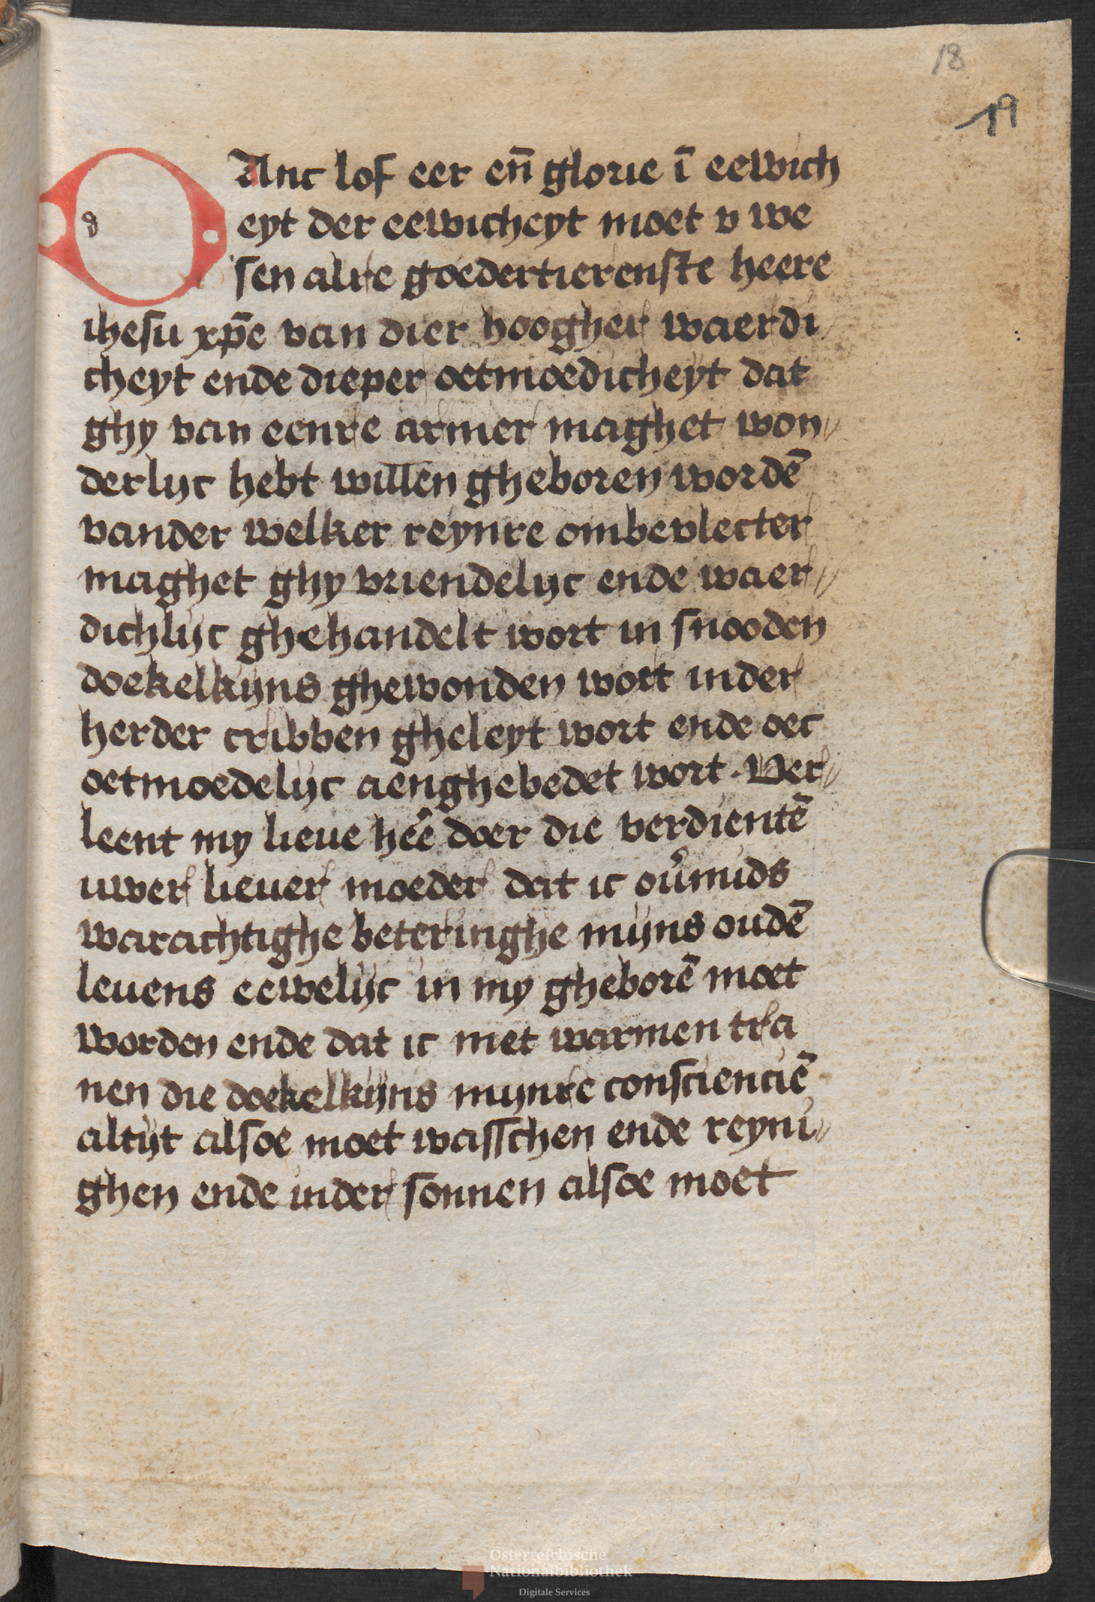 18
19
DAnc lof eer en̄ glorie ī eewich
eyt der eewicheyt moet v we
sen alre goedertierenste heere
ihesu xp̄e van dier hoogher waerdi
cheyt ende dieper oetmoedicheyt dat
ghy van eenre armer maghet won⸗
derlijc hebt willen gheboren wordē
vander welker reynre ombevlecter
maghet ghy vriendelijc ende waer⸗
dichlijc ghehandelt wort in snooden
doekelkijns ghewonden wort inder
herder cribben gheleyt wort ende oec
oetmoedelijc aenghebedet wort . Ver⸗
leent my lieue heē doer die verdientē
uwer lieuer moeder dat ic ou̓mids
warachtighe beteringhe mijns oudē
leuens eewelijc in my gheborē moet
worden ende dat ic met warmen tra
nen die doekelkijns mijnre conscienciē
altijt alsoe moet wasschen ende reyni⸗
ghen ende inder sonnen alsoe moet
Österreichische
Nationalbibliothek
Digitale Services